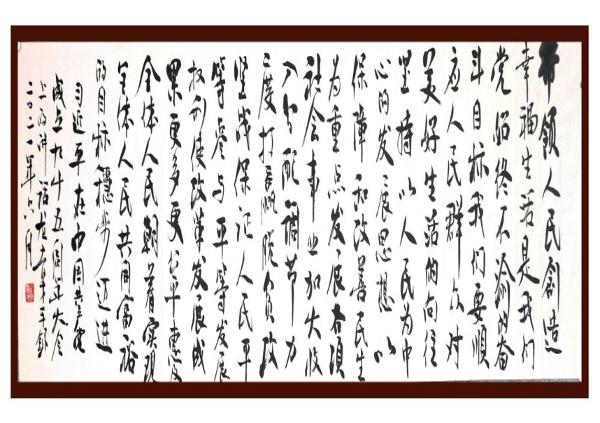 带领人民创造
幸福生活是我们
党始终不渝的奋
斗目标我们要顺
应人民群众对
美好生活的向往
坚持以人民为中
心的发展思想以
保障和改善民生
为重点发展各项
社会事业加大收
入分配调节力
度打赢脱贫攻
坚战保证人民平
等参与平等发展
权利使改革发展成
果更多更公平惠及
全体人民朝着实现
全体人民共同富裕
的目标稳步迈进
习近平在中国共产党
成立九十五周年大会
上的讲话 手录
二〇二一年六月